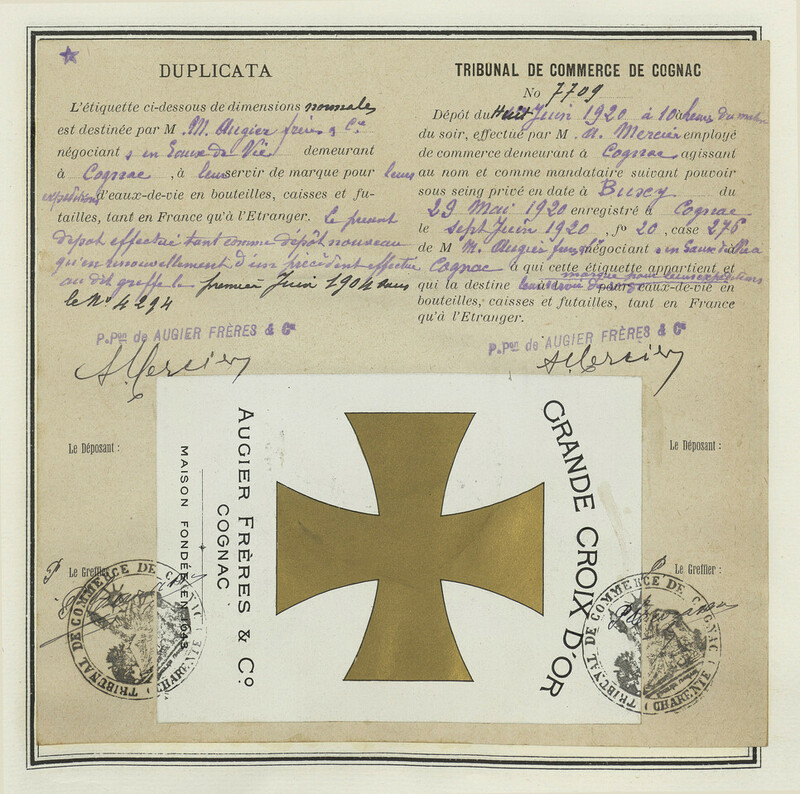 DUPLICATA
L'étiquette ci-dessous de dimensions normales
est destinée par M. M. Augier frères & Cie
négociant s en Eaux de Vie demeurant
à Cognac, à leur servir de marque pour leurs
expéditions d'eaux-de-vie en bouteilles, caisses et fu-
tailles, tant en France qu'à l'Etranger. Le présent
dépôt effectué tant comme dépôt nouveau
qu'en renouvellement d'un précédent effectué
au dit greffe le premier Juin 1904 sous
le No 4294
P. Pon de AUGIER FRÈRES & Cie
A. Mercier
Le Déposant :
Le Greffier :
TRIBUNAL DE COMMERCE DE COGNAC
(CHARENTE)
TRIBUNAL DE COMMERCE DE COGNAC
No 7709
Dépôt du Huit Juin 1920 à 10 heures du matin
du soir, effectué par M. A. Mercier employé
de commerce demeurant à Cognac agissant
au nom et comme mandataire suivant pouvoir
sous seing privé en date à Burcy du
29 Mai 1920 enregistré à Cognac
le sept Juin 1920, fo 20, case 276
de M. M. Augier frères négociant s en Eaux de Vie à
Cognac à qui cette étiquette appartient et
qui la destine eaux-de-vie en
bouteilles, caisses et futailles, tant en France
qu'à l'Etranger.
P. Pon de AUGIER FRÈRES & Cie
A. Mercier
Le Déposant :
Le Greffier :
TRIBUNAL DE COMMERCE DE COGNAC
(CHARENTE)
GRANDE CROIX D'OR
AUGIER FRÈRES & Co
COGNAC
MAISON FONDÉE EN 1643